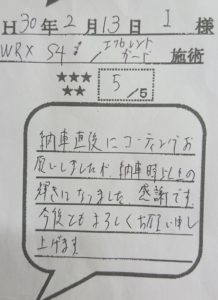 H30年2月13日 I 様
WRX S4 エクセレントガード 施術
★★★
★★
5/5
納車直後にコーティングお
願いしましたが納車時以上の
輝きになりました 感謝です
今後ともよろしくお願い申し
上げます